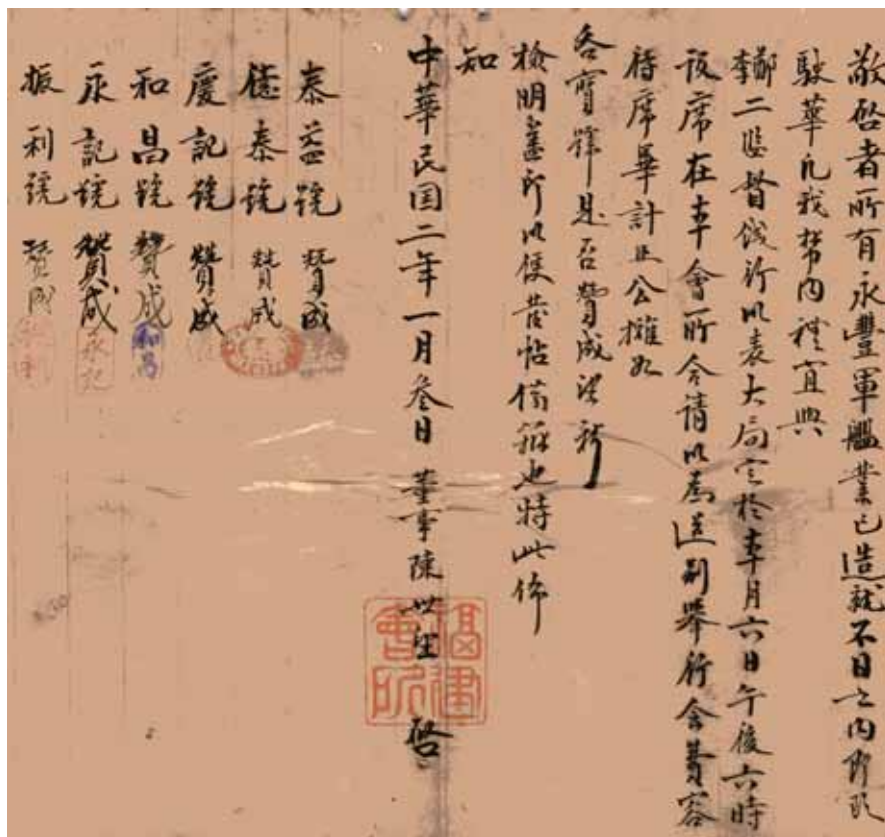 敬啓者所有永豐軍艦業已造就不日之内即駛
駛華凡我幇内禮宜與
鄭李二監督餞行以表大局定於本月六日午後六時
設席在本會所合請以爲送別舉行會費容
待席畢計正公攤如
各寶號是否贊成望祈
檢明蓋印以便發帖備辦也特此佈
知
中華民国二年一月叁日 董事陳世望 啓
福建會所
泰益號 贊成
德泰號 贊成
慶記號 贊成
和昌號 贊成 和昌
永記號 贊成 永記
振利號 贊成 振利